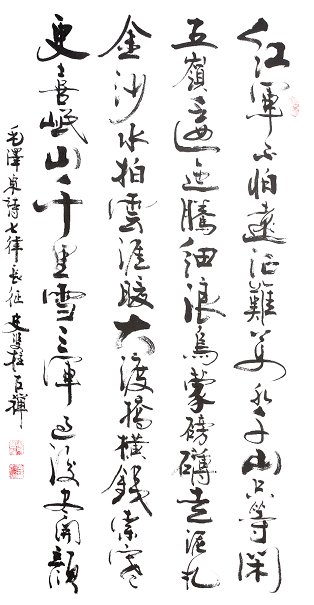 紅軍不怕遠征難萬水千山只等閑
五嶺逶迤騰細浪烏蒙磅礴走泥丸
金沙水拍雲崖暖大渡橋橫鐵索寒
更喜岷山千里雪三軍過後尽開顏
毛澤東詩七律長征